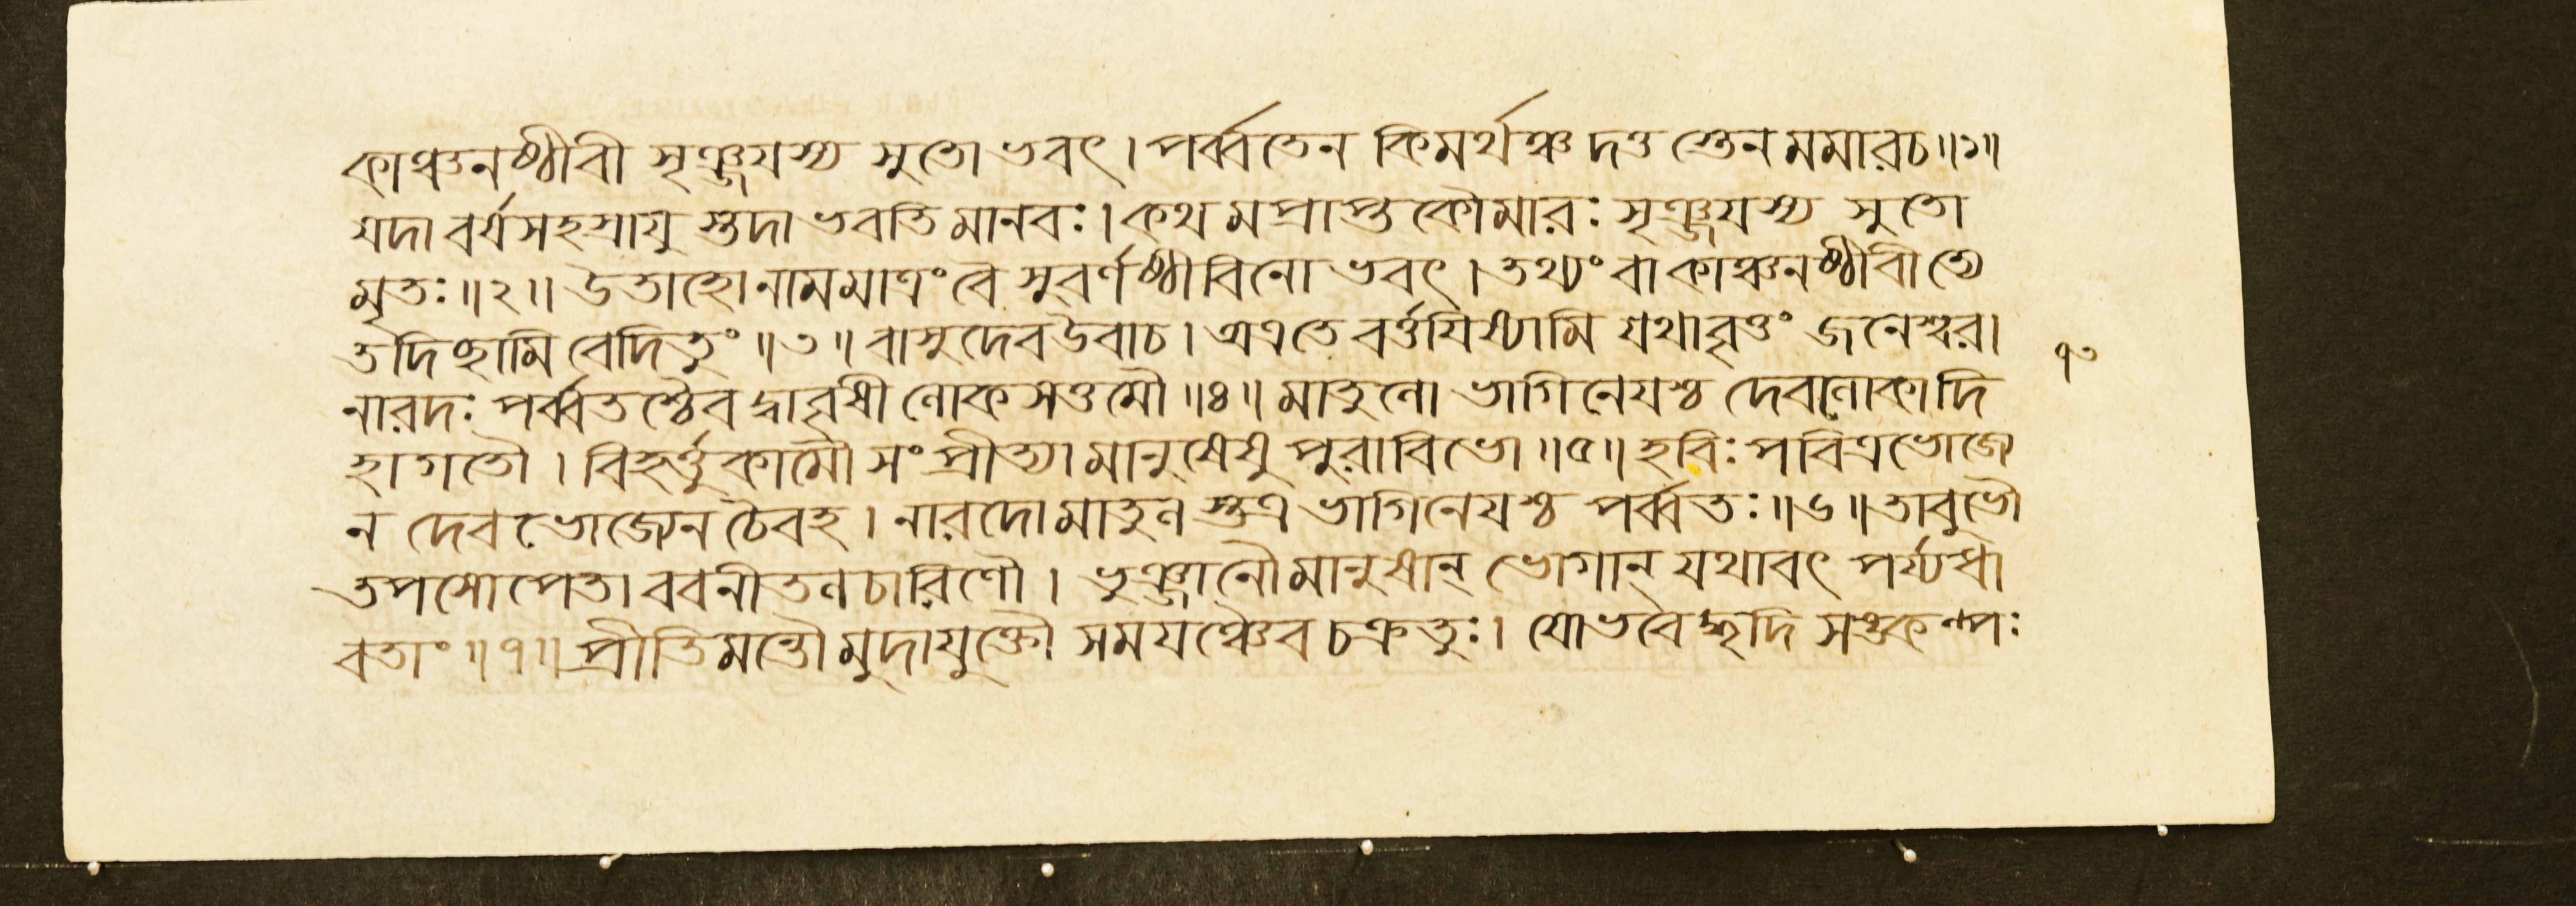 কাঞ্চনষ্ঠীবী সৃঞ্জযস্য সুতো ভবৎ। পর্ব্বতেন কিমর্থঞ্চ দত্ত স্তেন মমারচ॥১॥
যদা বর্ষসহস্রাযু স্তদা ভবতি মানবঃ। কথ মপ্রাপ্তকৌমারঃ সৃঞ্জযস্য সুতো
মৃতঃ॥২॥ উতাহো নামমাত্রং বৈ সুবর্ণষ্ঠীবিনো ভবৎ। তথ্যং বা কাঞ্চনষ্ঠীবীত্যে
তদিচ্ছামি বেদিতুং॥৩॥ বাসুদেব উবাচ। অত্রতে বর্ত্তযিষ্যামি যথাবৃত্তং জনেশ্বর।
৭৩
নারদঃ পর্ব্বতশ্চৈব দ্বাবৃষী লোকসত্তমৌ॥৪॥ মাতুলো ভাগিনেযশ্চ দেবলোকাদি
হাগতৌ। বিহর্ত্তুকামৌ সংপ্রীত্যা মানুষেষু পুরাবিভো॥৫॥ হবিঃ পবিত্রভোজ্যে
ন দেবভোজ্যেন চৈবহ। নারদো মাতুল স্তত্র ভাগিনেযশ্চ পর্ব্বতঃ॥৬॥ তাবুভৌ
তপসোপেতা ববনীতলচারিণৌ। ভুঞ্জানৌ মানুষান্ ভোগান্ যথাবৎ পর্য্যধা
বতাং॥৭॥ প্রীতিমন্তৌ মুদাযুক্তৌ সমযঞ্চৈব চক্রতুঃ। যো ভবেদ্ধৃদি সঙ্কল্পঃ